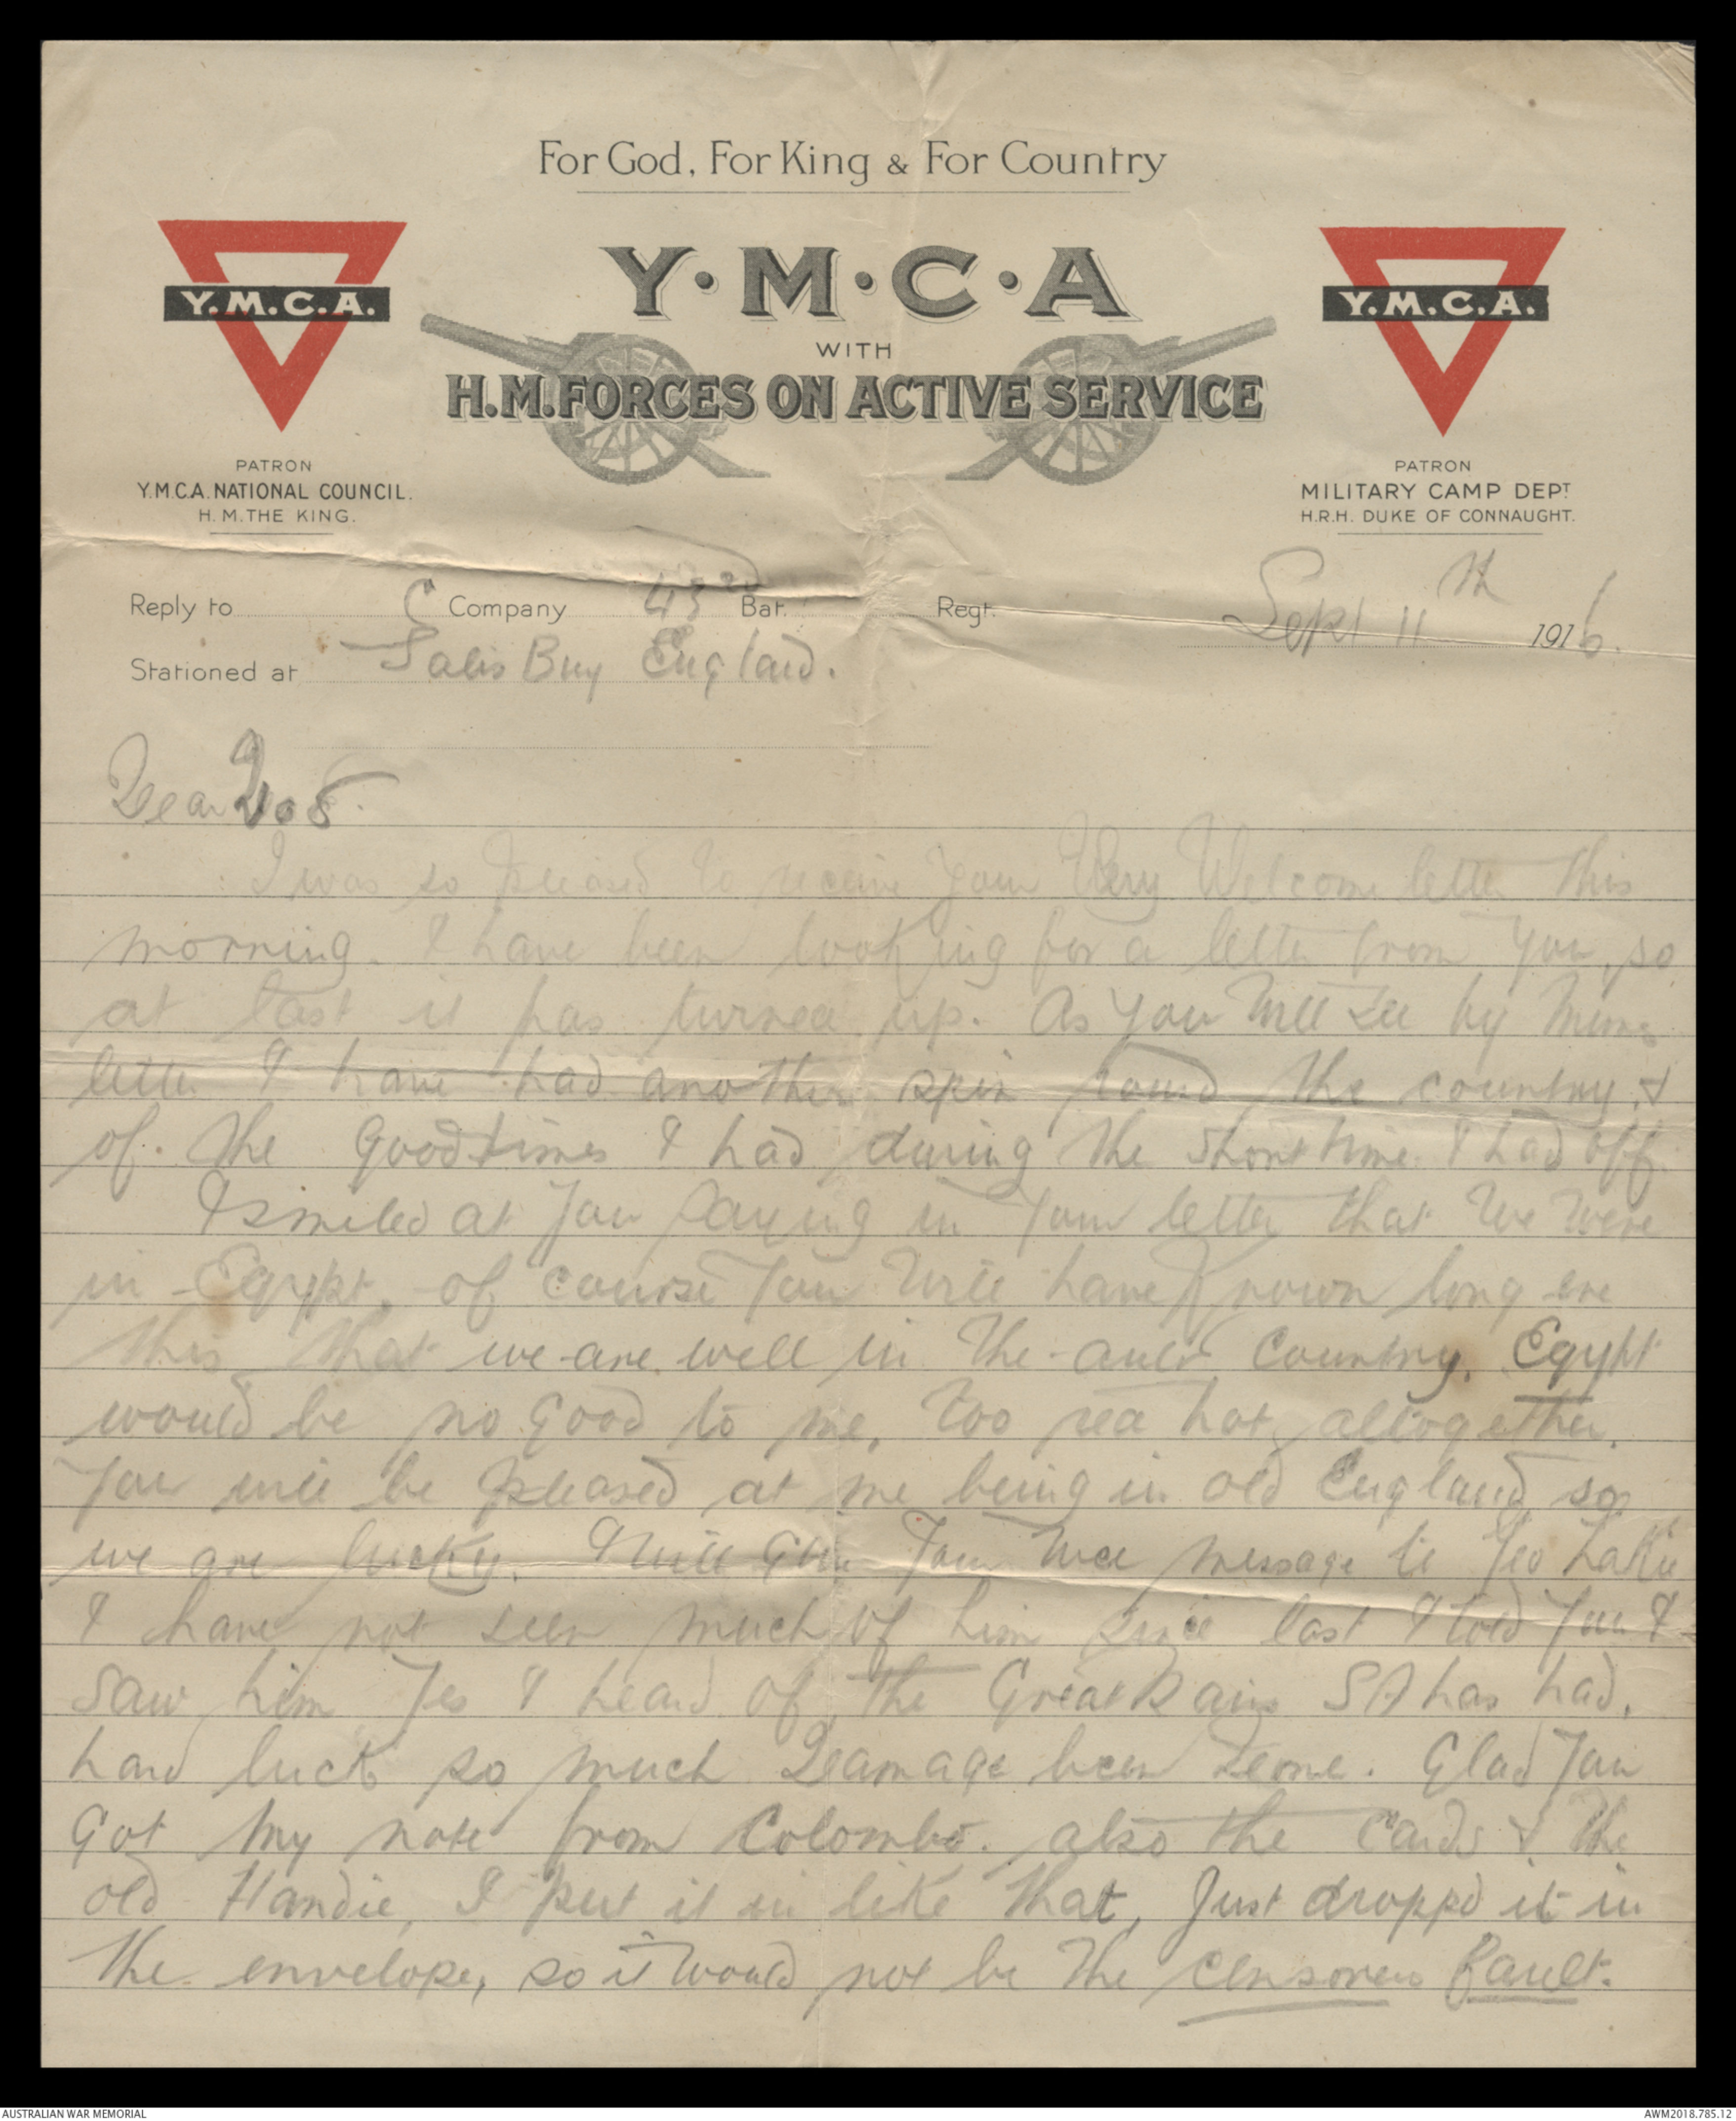 For God, For King & For Country
Y.M.C.A.
Y·M·C·A
Y.M.C.A.
WITH
H.M. FORCES ON ACTIVE SERVICE
PATRON
Y.M.C.A. NATIONAL COUNCIL.
H.M. THE KING.
PATRON
MILITARY CAMP DEPT
H.R.H. DUKE OF CONNAUGHT.
Reply to C Company 43rd Bat. Regt. Sept 11th 1916.
Stationed at Salis Buy England.
Dear
I was so pleased to receive your Very Welcome letter this
morning. I have been looking for a letter from you, so
at last it has turned up. As you will see by Mums
letter I have had another spin round the country &
of the good times I had during the short time I had off.
I smiled at you saying in your letter that we were
in Egypt, of course you will have known long ere
this that we are well in the country. Egypt
would be no good to me, too red hot altogether.
You will be pleased at me being in old England so
we are lucky. I will give your message to
I have not seen much of him since last I told you I
saw him Yes I heard of the Great Rains SA has had,
hard luck so much Deamage been deone. Glad you
Got my note from Colombo. also the cards & the
old Handie, I put it in like that, Just dropp'd it in
the envelope, so it would not be the censorers fault.
AUSTRALIAN WAR MEMORIAL
AWM2018.785.12